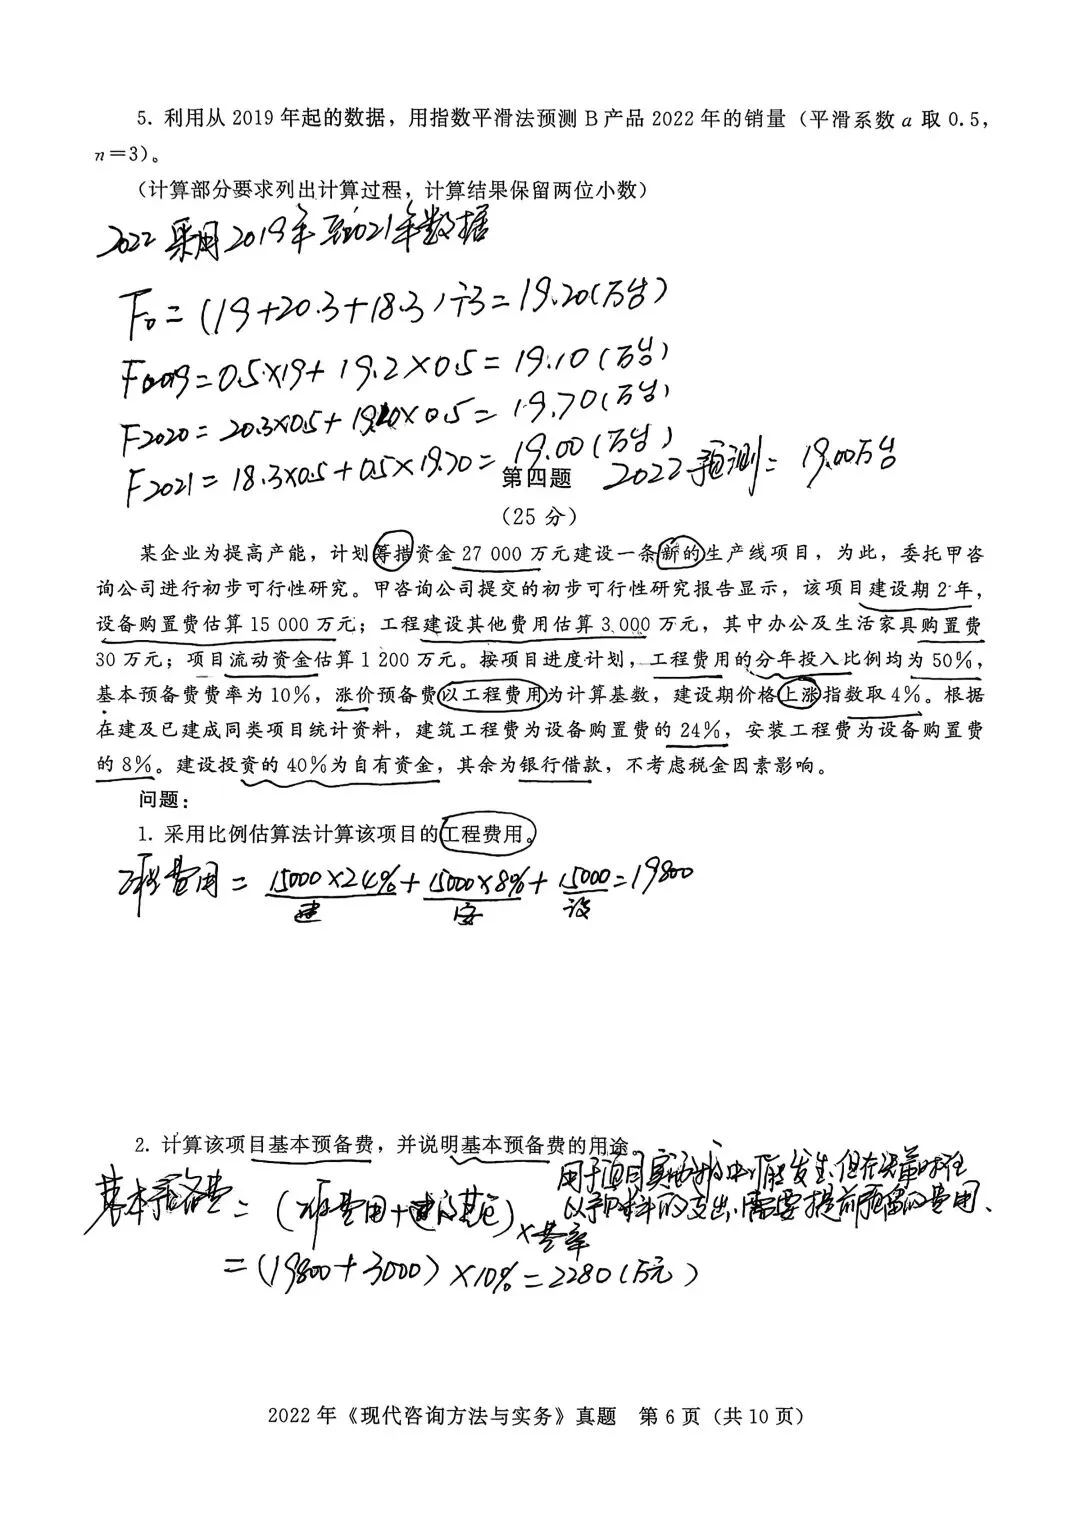 5. 利用从 2019 年起的数据，用指数平滑法预测 B 产品 2022 年的销量（平滑系数 a 取 0.5，
n＝3）。
（计算部分要求列出计算过程，计算结果保留两位小数）
2022 采用 2019年至2021年数据
F₀ = (19+20.3+18.3)÷3 = 19.20(万台)
F2019 = 0.5×19 + 19.2×0.5 = 19.10(万台)
F2020 = 20.3×0.5 + 19.10×0.5 = 19.70(万台)
F2021 = 18.3×0.5 + 0.5×19.70 = 19.00(万台) 2022预测 = 19.00万台
第四题
（25 分）
某企业为提高产能，计划筹措资金 27 000 万元建设一条新的生产线项目，为此，委托甲咨
询公司进行初步可行性研究。甲咨询公司提交的初步可行性研究报告显示，该项目建设期 2 年，
设备购置费估算 15 000 万元；工程建设其他费用估算 3 000 万元，其中办公及生活家具购置费
30 万元；项目流动资金估算 1 200 万元。按项目进度计划，工程费用的分年投入比例均为 50％，
基本预备费费率为 10％，涨价预备费以工程费用为计算基数，建设期价格上涨指数取 4％。根据
在建及已建成同类项目统计资料，建筑工程费为设备购置费的 24％，安装工程费为设备购置费
的 8％。建设投资的 40％为自有资金，其余为银行借款，不考虑税金因素影响。
问题：
1. 采用比例估算法计算该项目的工程费用。
工程费用 = 15000×24% + 15000×8% + 15000 = 19800
建 安 设
2. 计算该项目基本预备费，并说明基本预备费的用途
用于项目实施中可能发生、但在决策阶段
难以预料的支出，需要提前预留的费用、
基本预备费 = (工程费用+建设其它)×费率
= (19800+3000)×10% = 2280(万元)
2022 年《现代咨询方法与实务》真题 第 6 页（共 10 页）